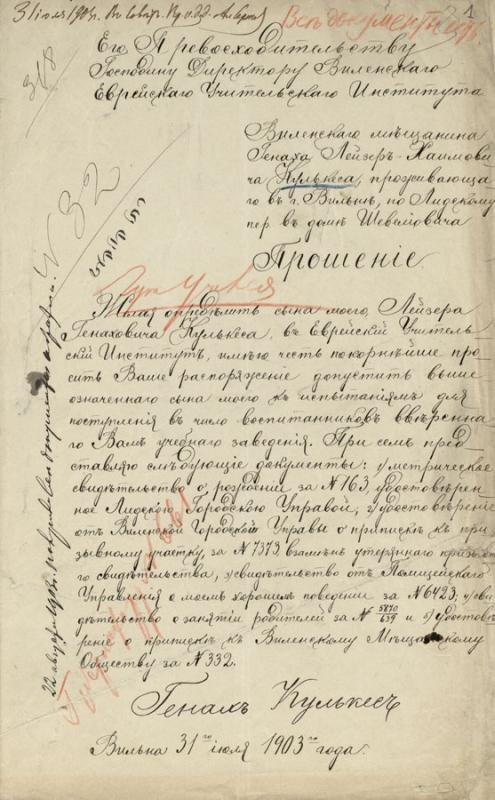 31 іюля 1903 г.
Всѣ документы
1
318
Его Превосходительству
Господину Директору Виленскаго
Еврейскаго Учительскаго Института
Виленскаго мѣщанина
Генаха Лейзер-Хаимови
ча Кулькеса, проживающа
го въ г. Вильнѣ, по Лидскому
пер. въ домѣ
№ 82
Прошеніе
Желая опредѣлить сына моего, Лейзера
Генаховича Кулькеса, въ Еврейскій Учитель-
скій Институтъ, имѣю честь покорнѣйше про-
сить Ваше распоряженіе допустить выше
означеннаго сына моего къ испытаніямъ для
поступленія въ число воспитанниковъ ввѣренна
го Вамъ учебнаго заведенія. При семъ пред-
ставляю слѣдующіе документы: 1) метрическое
свидѣтельство о рожденіи за № 163, удостовѣрен-
ное Лидскою Городскою Управой, 2) удостовѣреніе
отъ Виленской Городской Управы о припискѣ къ при-
зывному участку, за № 7373 взамѣнъ утеряннаго
го свидѣтельства, 3) свидѣтельство отъ Полицейскаго
Управленія о моемъ хорошемъ поведеніи за № 6423, 4) сви
дѣтельство о занятіи родителей за № 5870/639 и 5) удостовѣ
реніе о припискѣ къ Виленскому Мѣщанскому
Обществу за № 332.
Генахъ Кулькесъ
Вильна 31го іюля 1903го года.
22 августа 1903 г.